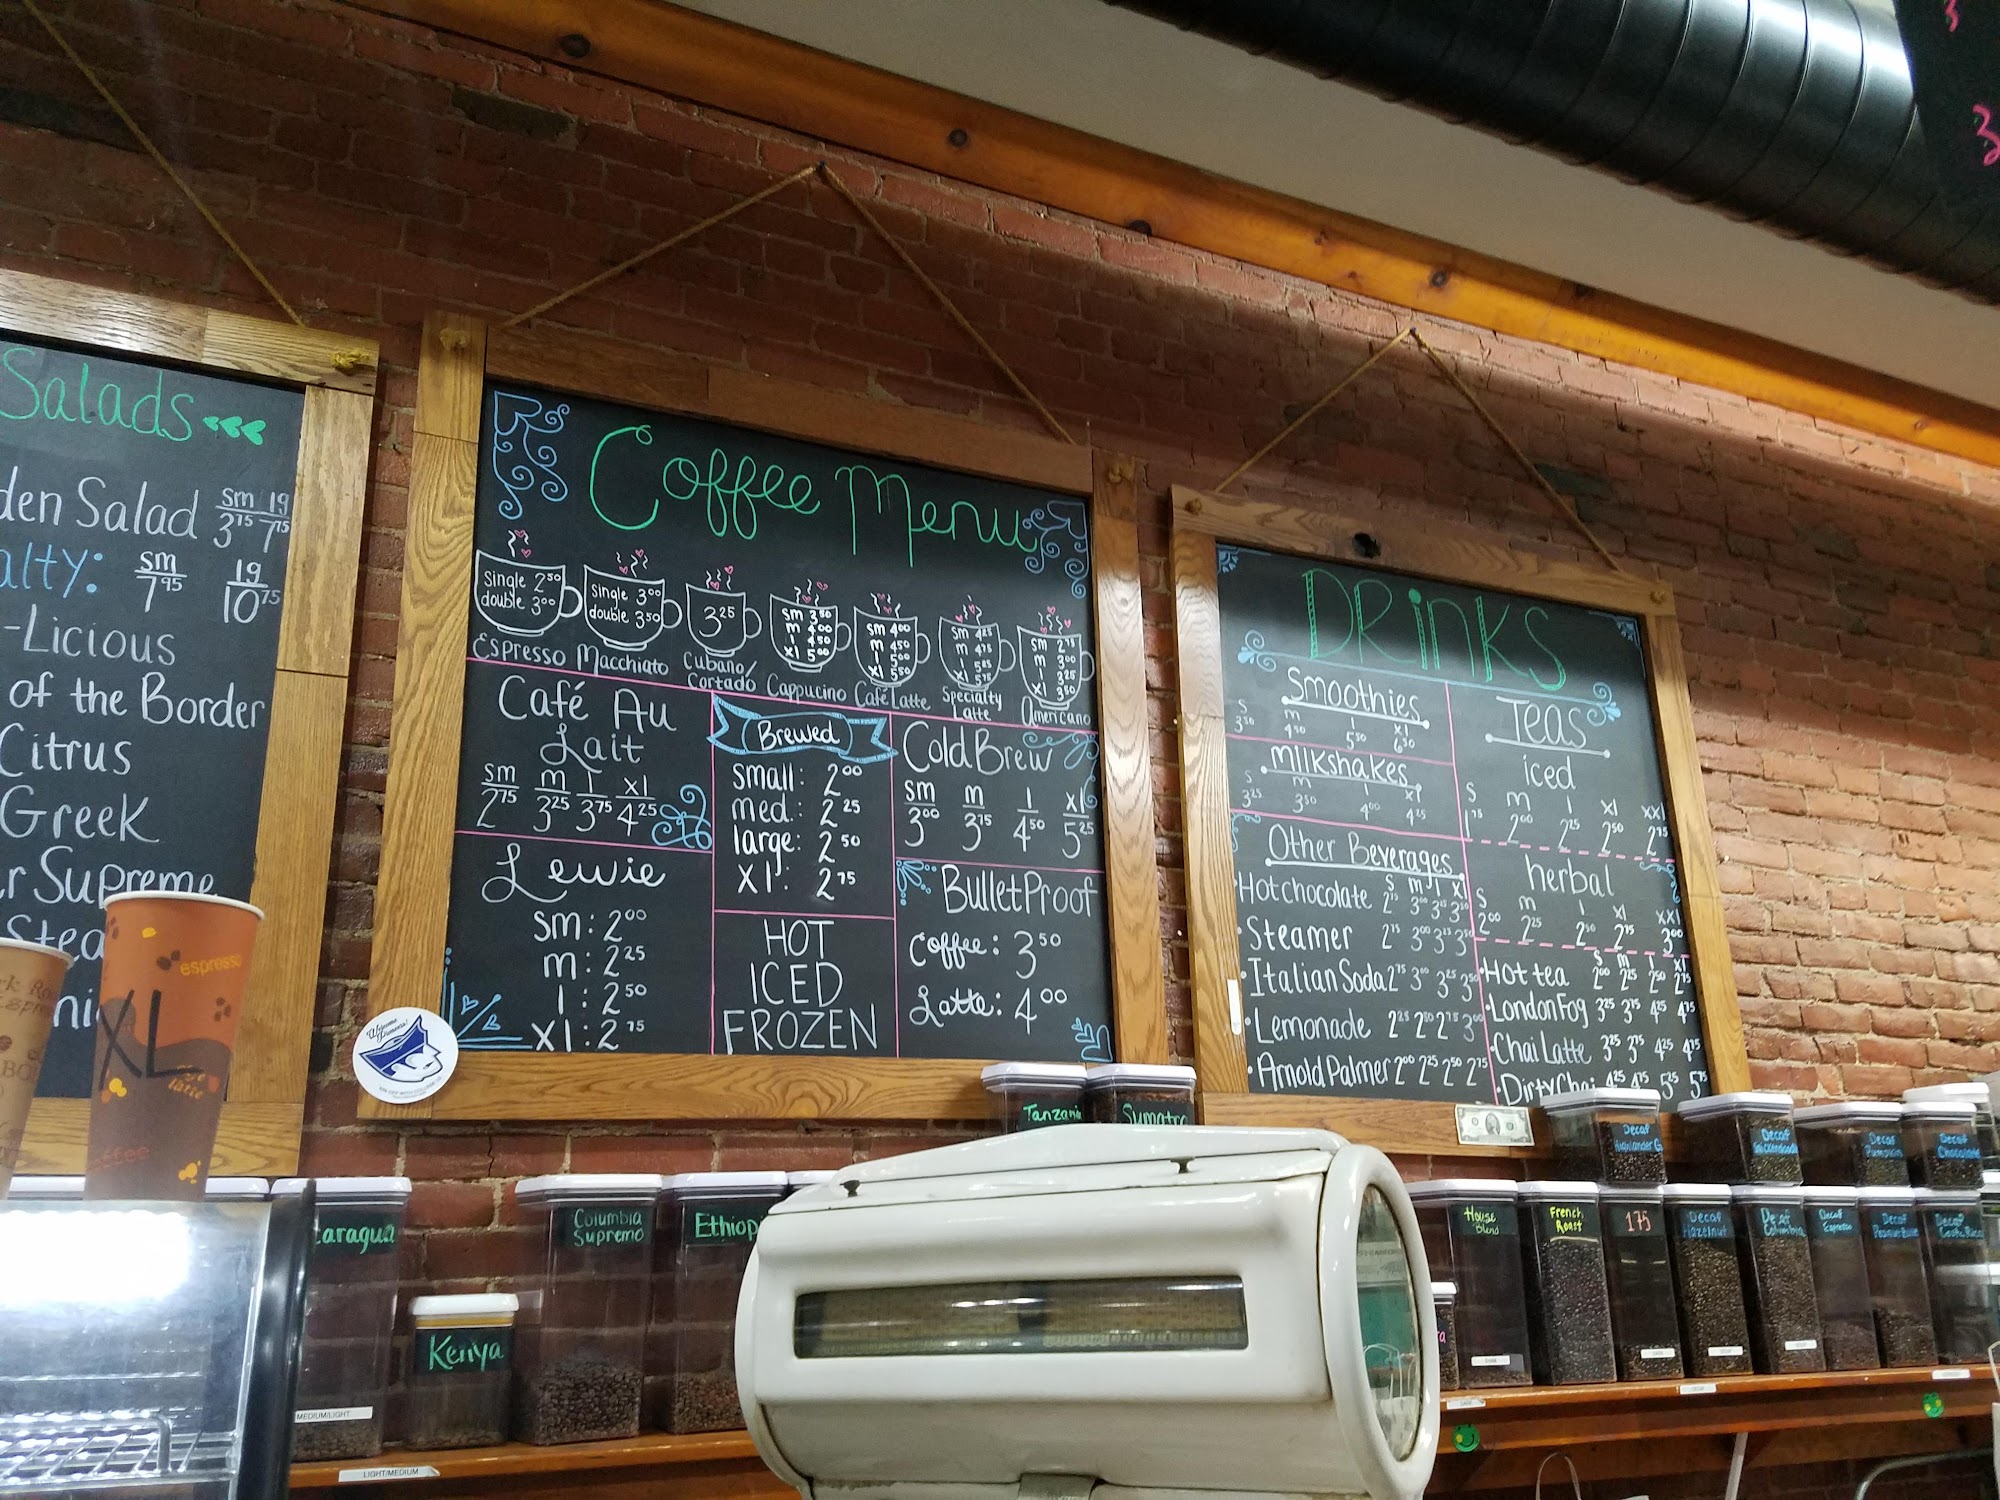 Salads
den Salad sm 3 75 lg 7 75
alty: sm 7 95 lg 10 75
-Licious
of the Border
Citrus
Greek
r Supreme
Stea
Coffee Menu
single 2 50
double 3 00
Espresso
single 3 00
double 3 50
Macchiato
3 25
Cubano/
Cortado
sm 3 50
m 4 00
l 4 50
xl 5 00
Cappucino
sm 4 00
m 4 50
l 5 00
xl 5 50
Café Latte
sm 4 25
m 4 75
l 5 25
xl 5 75
Specialty
Latte
sm 2 75
m 3 00
l 3 25
xl 3 50
Americano
Café Au
Lait
sm m l xl
2 75 3 25 3 75 4 25
Lewie
sm: 2 00
m: 2 25
l: 2 50
xl: 2 75
Brewed
small: 2 00
med.: 2 25
large: 2 50
xl: 2 75
HOT
ICED
FROZEN
Cold Brew
sm m l xl
3 00 3 75 4 50 5 25
BulletProof
Coffee: 3 50
Latte: 4 00
DRINKS
Smoothies
s m l xl
3 50 4 50 5 50 6 50
Milkshakes
s m l xl
3 25 3 50 4 00 4 25
Other Beverages
s m l xl
Hot chocolate 2 75 3 00 3 25 3 50
•Steamer 2 75 3 00 3 25 3 50
•Italian Soda 2 75 3 00 3 25 3 50
•Lemonade 2 25 2 50 2 75 3 00
•Arnold Palmer 2 00 2 25 2 50 2 75
Teas
iced
s m l xl xxl
1 75 2 00 2 25 2 50 2 75
herbal
s m l xl xxl
2 00 2 25 2 50 2 75 3 00
s m l xl
•Hot tea 2 00 2 25 2 50 2 75
•London Fog 3 25 3 75 4 25 4 75
•Chai Latte 3 25 3 75 4 25 4 75
•Dirty Chai 4 25 4 75 5 25 5 75
espresso
XL
latte
coffee
Welcome
Tanzania
Sumatra
Decaf
Highlander G
Decaf
Decaf
Pumpkin
Decaf
Chocolate
caragua
Columbia
Supremo
Ethiop
House
Blend
French
Roast
175
Decaf
Hazelnut
Decaf
Columbia
Decaf
Espresso
Decaf
Decaf
Kenya
MEDIUM/LIGHT
LIGHT/MEDIUM